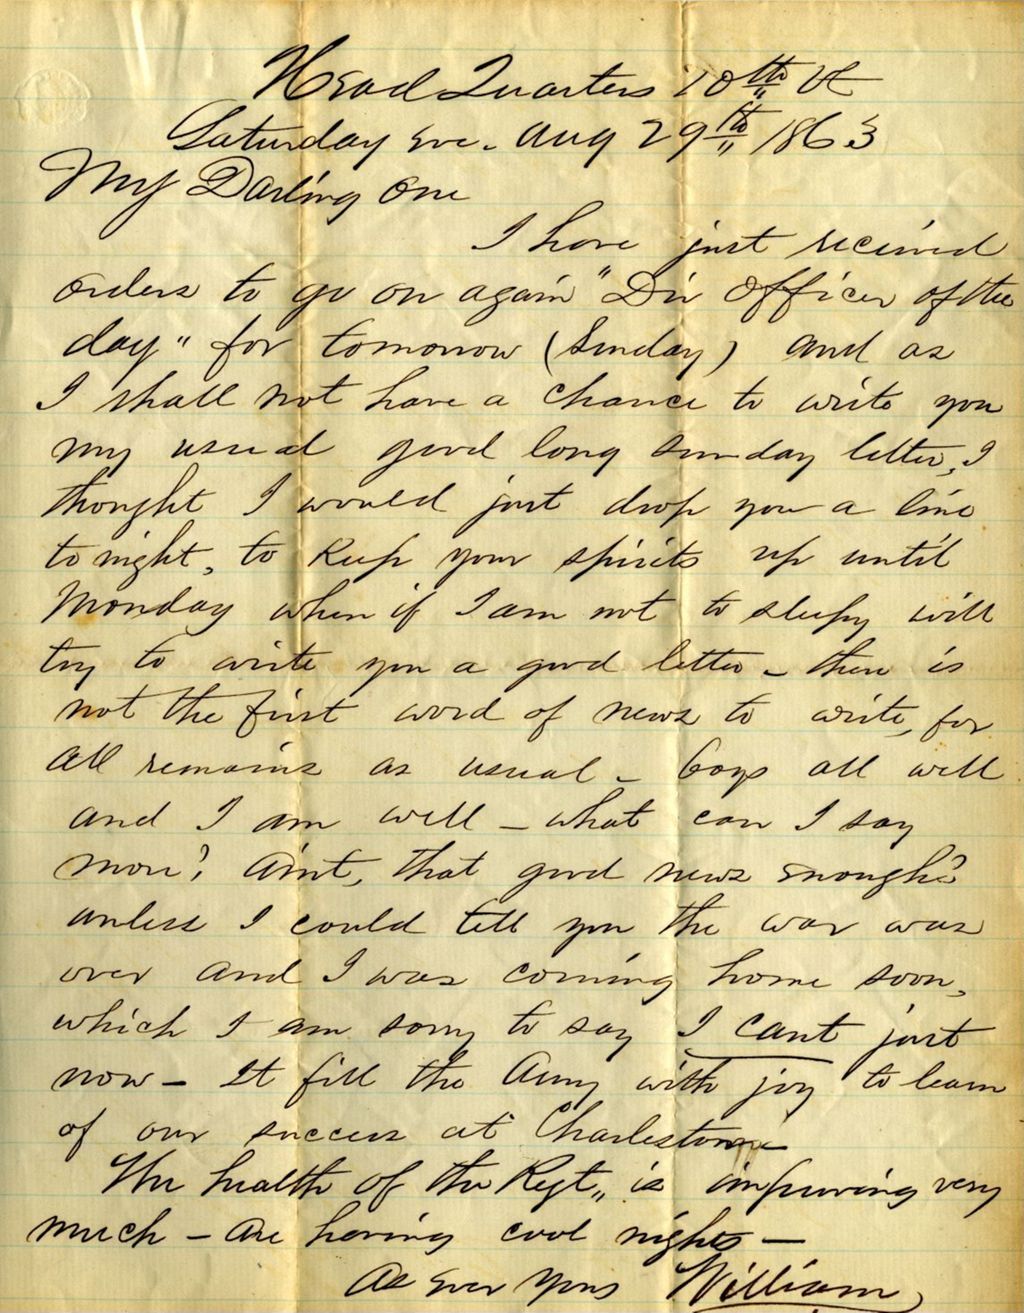 Head Quarters 10th Vt
Saturday Eve. Aug 29th 1863
My Darling One
I have just received
orders to go on again "Div Officer of the
day" for tomorrow (Sunday) and as
I shall not have a chance to write you
my usual good long Sunday letter, I
thought I would just drop you a line
to night, to keep your spirits up until
Monday when if I am not to sleepy will
try to write you a good letter - there is
not the first word of news to write, for
all remains as usual - boys all well
and I am well - what can I say
more? Aint, that good news enough?
unless I could tell you the war was
over and I was coming home soon,
which I am sorry to say I cant just
now - It fill the Army with joy to learn
of our success at Charlestown
The health of the Regt,, is improving very
much - are having cool nights -
As Ever Yours William,